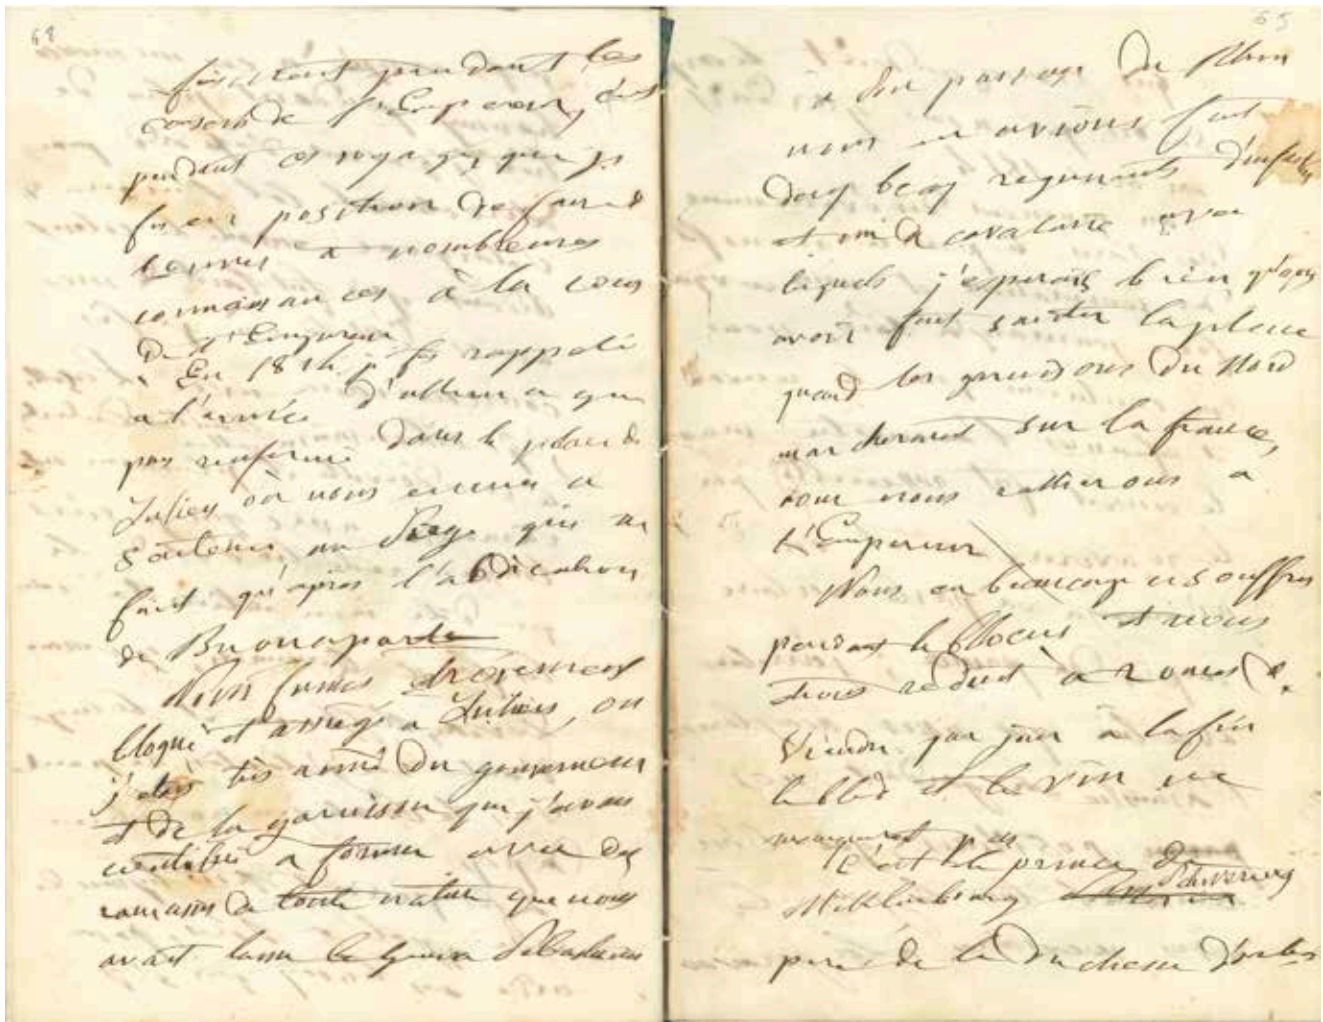 68
existant pendant les
conseils de l'Empereur, c'est
pendant ces voyages que je
fus en position de faire de
bonnes et nombreuses
connaissances à la cour
de l'Empereur
En 1814 je fus rappelé
a l'armée d'allem a que
pas renfermé dans la place de
Juliers où nous eumes a
soutenir un siège qui ne
finit qu'après l'abdication
de Buonaparte
Nous fumes étroitement
bloqué et assiégé a Juliers, ou
j'étais très aimé du gouverneur
et de la garnison que j'avais
contribué a former avec des
ramassis de toute nature que nous
avait laissé le général Sébastiani
65
a son passage du Rhin
nous en avions fait
deux beaux regiments d'infanterie
et un de cavalerie avec
lesquels j'esperais bien qu'on
avait fait sauter la place
quand les garnisons du Nord
marcheraient sur la france,
nous nous rallierons a
L'Empereur
Nous eu beaucoup a souffrir
pendant le blocus et nous
étions reduit à 2 onces de
viande par jour à la fin
le bled et le vin ne
manquerent pas
C'était le prince de
Mecklenbourg Schwerin
pere de la Duchesse d'orleans